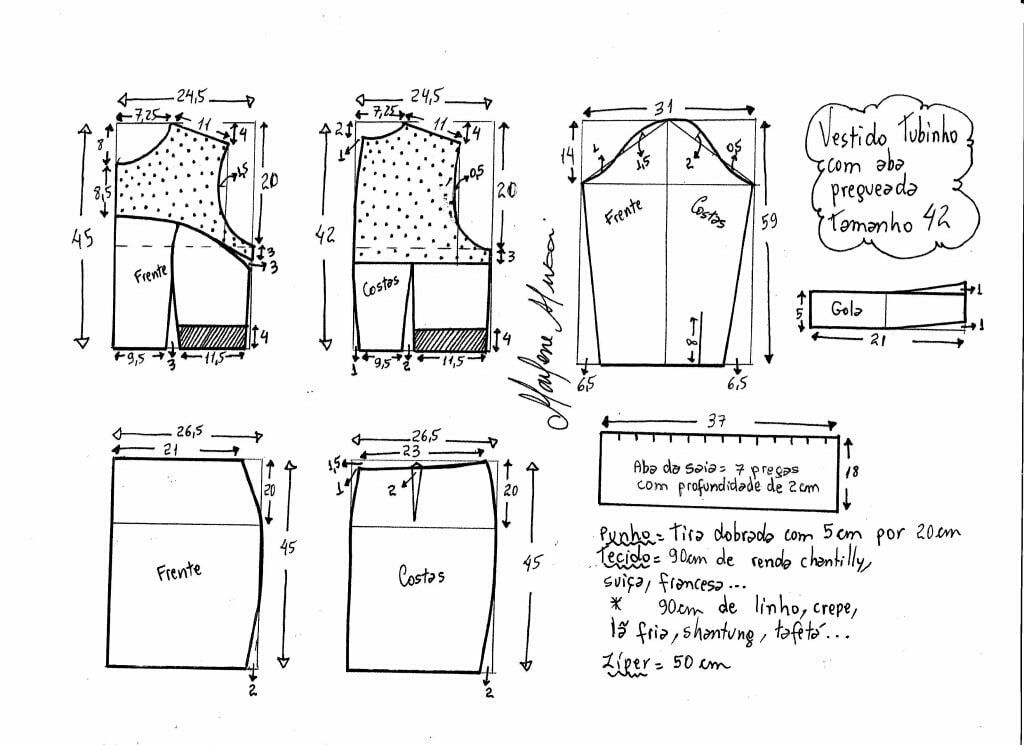 24,5
7,25
11
4
8
8,5
45
1,5
20
3
3
Frente
4
9,5
3
11,5
24,5
7,25
11
2
4
1
0,5
42
20
3
Costas
4
1
9,5
2
11,5
31
14
1
1,5
2
0,5
Frente
Costas
59
8
6,5
6,5
Vestido Tubinho
com aba
pregueada
tamanho 42
5
Gola
1
1
21
26,5
21
20
45
Frente
2
26,5
23
1,5
1
2
20
45
Costas
2
37
Aba da saia = 7 pregas
com profundidade de 2cm
18
Punho = Tira dobrada com 5cm por 20cm
Tecido = 90cm de renda chantilly,
suiça, francesa...
* 90cm de linho, crepe,
lã fria, shantung, tafetá...
Zíper = 50 cm